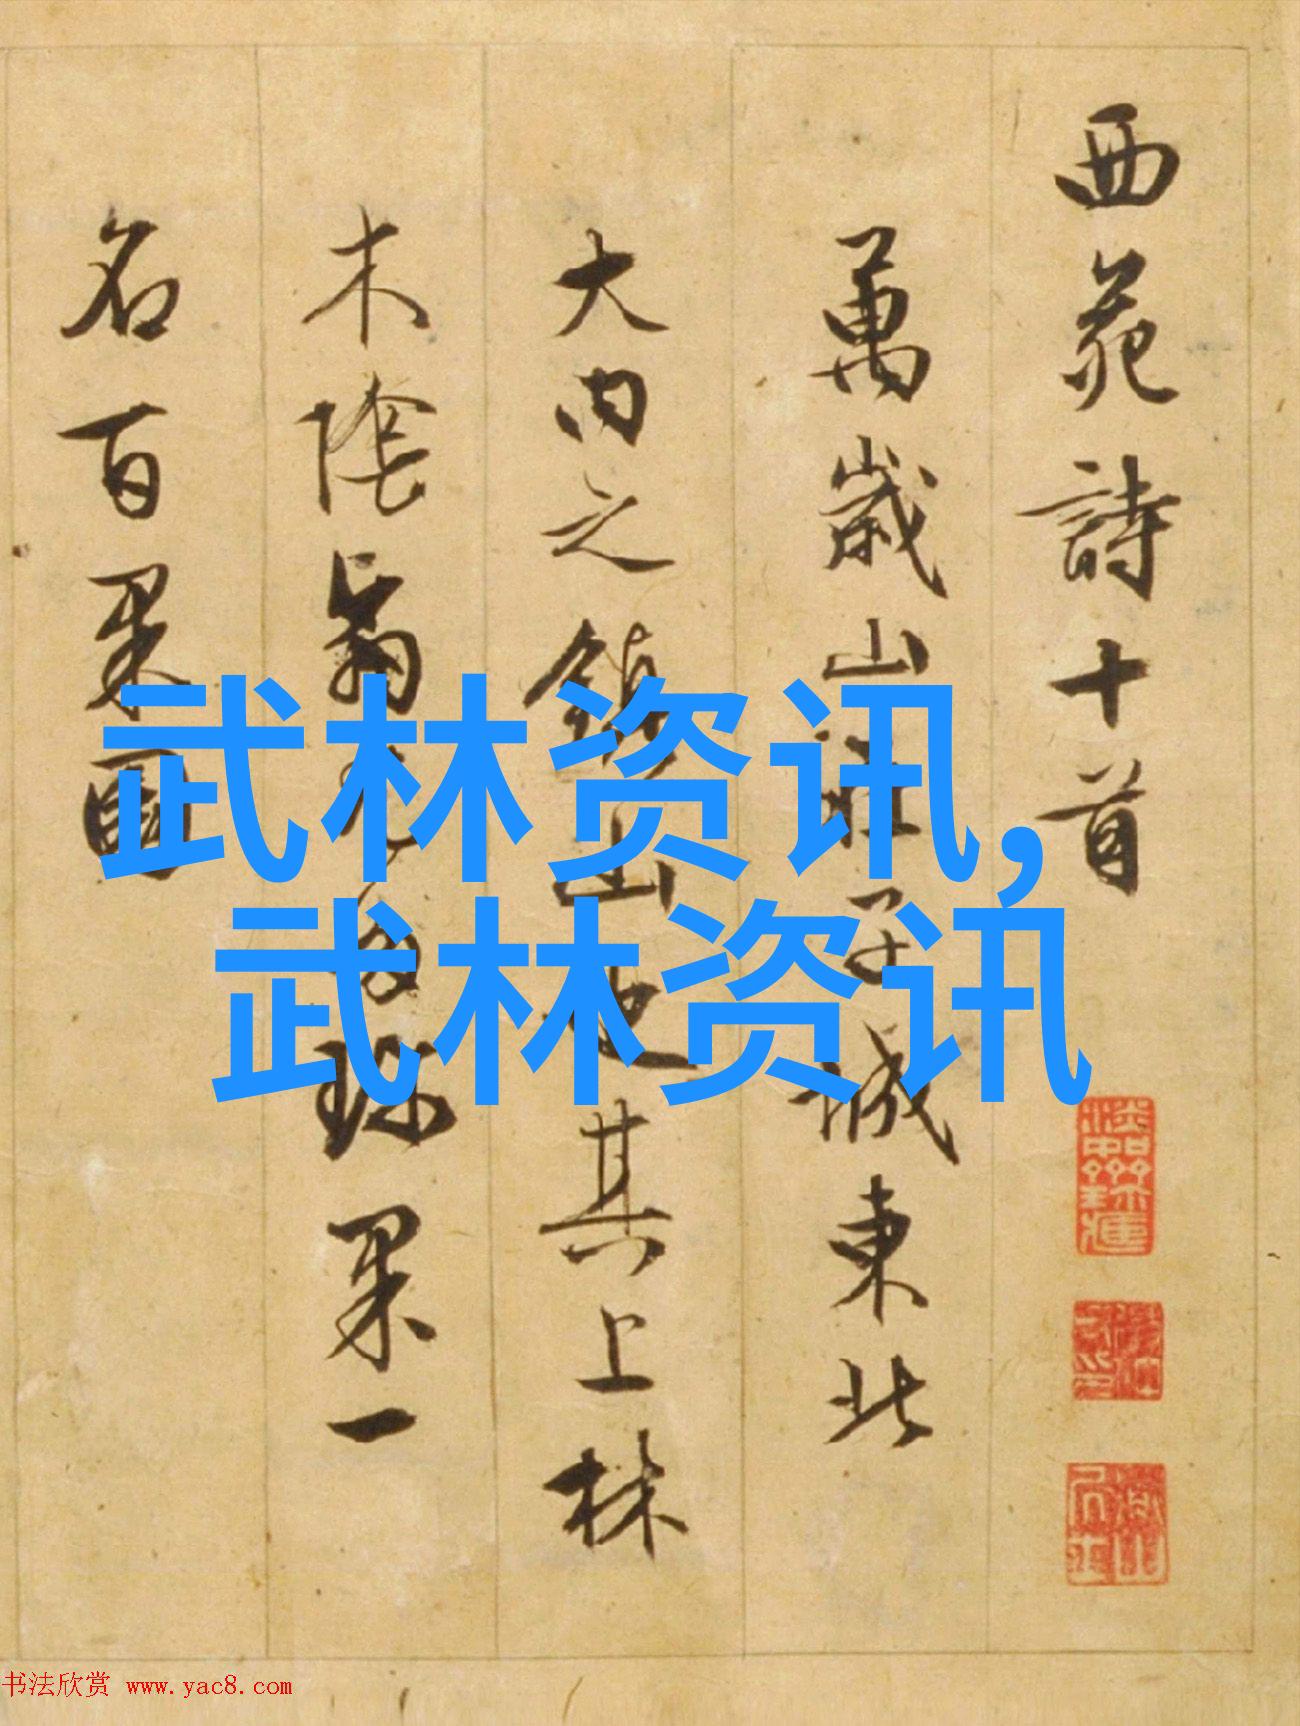 西苑詩十首
萬歲山在子城東北
大內之鎮山也其上林
木陰翳尤多珍果一
名百果園
武林资讯,
武林资讯
书法欣赏 www.yac8.com